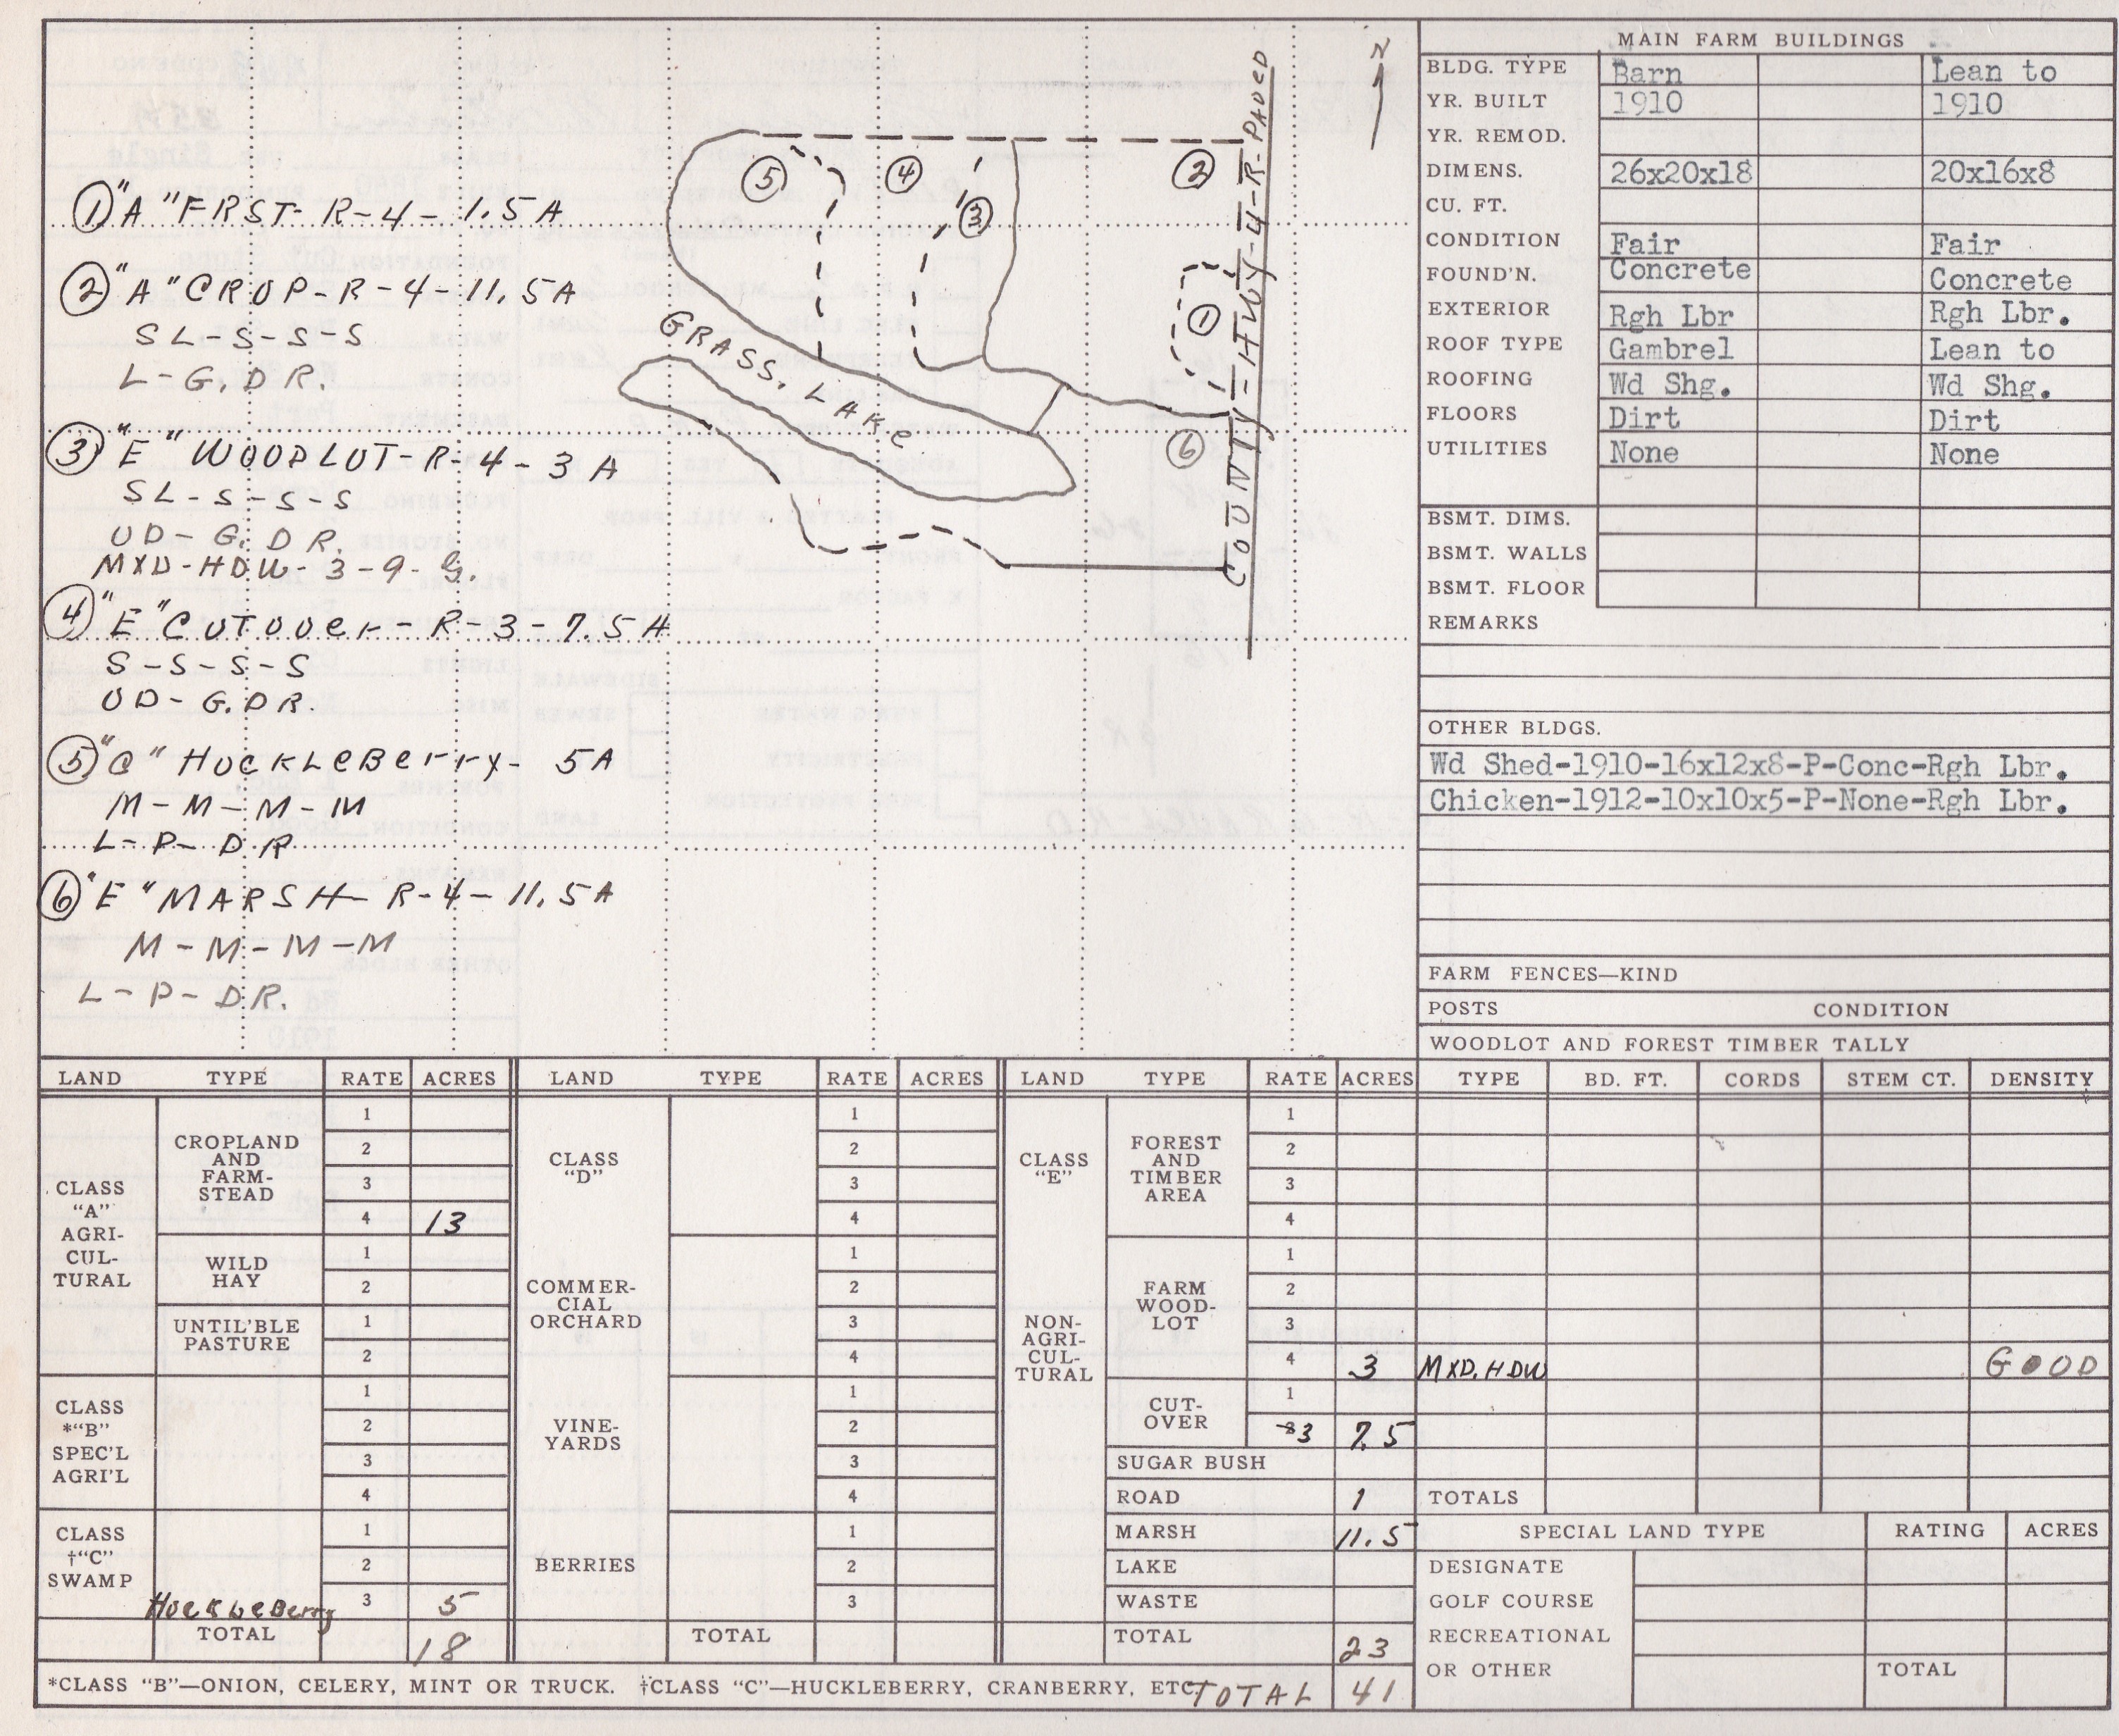 ① "A" FRST- R-4- 1.5A
② "A" CROP-R-4-11.5A
SL-S-S-S
L-G.DR.
③ "E" WOODLOT-R-4-3A
SL-S-S-S
UD-G.DR.
MXD-HDW-3-9-G.
④ "E" CUTOVER-R-3-7.5A
S-S-S-S
UD-G.DR.
⑤ "C" HUCKLEBERRY- 5A
M-M-M-M
L-P-DR
⑥ "E" MARSH-R-4-11.5A
M-M-M-M
L-P-DR.
N
⑤ ④ ②
③
①
GRASS. LAKE
⑥
COUNTY-HTWY-4-R-PAVED
MAIN FARM BUILDINGS
BLDG. TYPE Barn Lean to
YR. BUILT 1910 1910
YR. REMOD.
DIMENS. 26x20x18 20x16x8
CU. FT.
CONDITION Fair Fair
FOUND'N. Concrete Concrete
EXTERIOR Rgh Lbr Rgh Lbr.
ROOF TYPE Gambrel Lean to
ROOFING Wd Shg. Wd Shg.
FLOORS Dirt Dirt
UTILITIES None None
BSMT. DIMS.
BSMT. WALLS
BSMT. FLOOR
REMARKS
OTHER BLDGS.
Wd Shed-1910-16x12x8-P-Conc-Rgh Lbr.
Chicken-1912-10x10x5-P-None-Rgh Lbr.
FARM FENCES—KIND
POSTS CONDITION
WOODLOT AND FOREST TIMBER TALLY
TYPE BD. FT. CORDS STEM CT. DENSITY
MXD. HDW GOOD
TOTALS
SPECIAL LAND TYPE RATING ACRES
DESIGNATE
GOLF COURSE
RECREATIONAL
OR OTHER TOTAL
LAND TYPE RATE ACRES
CLASS
"A"
AGRI-
CUL-
TURAL
CROPLAND
AND
FARM-
STEAD
1
2
3
4 13
WILD
HAY
1
2
UNTIL'BLE
PASTURE
1
2
CLASS
*"B"
SPEC'L
AGRI'L
1
2
3
4
CLASS
†"C"
SWAMP
1
2
HuckleBerry 3 5
TOTAL 18
LAND TYPE RATE ACRES
CLASS
"D"
1
2
3
4
COMMER-
CIAL
ORCHARD
1
2
3
4
VINE-
YARDS
1
2
3
4
BERRIES
1
2
3
TOTAL
LAND TYPE RATE ACRES
CLASS
"E"
NON-
AGRI-
CUL-
TURAL
FOREST
AND
TIMBER
AREA
1
2
3
4
FARM
WOOD-
LOT
1
2
3
4 3
CUT-
OVER
1
3 7.5
SUGAR BUSH
ROAD 1
MARSH 11.5
LAKE
WASTE
TOTAL 23
*CLASS "B"—ONION, CELERY, MINT OR TRUCK. †CLASS "C"—HUCKLEBERRY, CRANBERRY, ETC. TOTAL 41